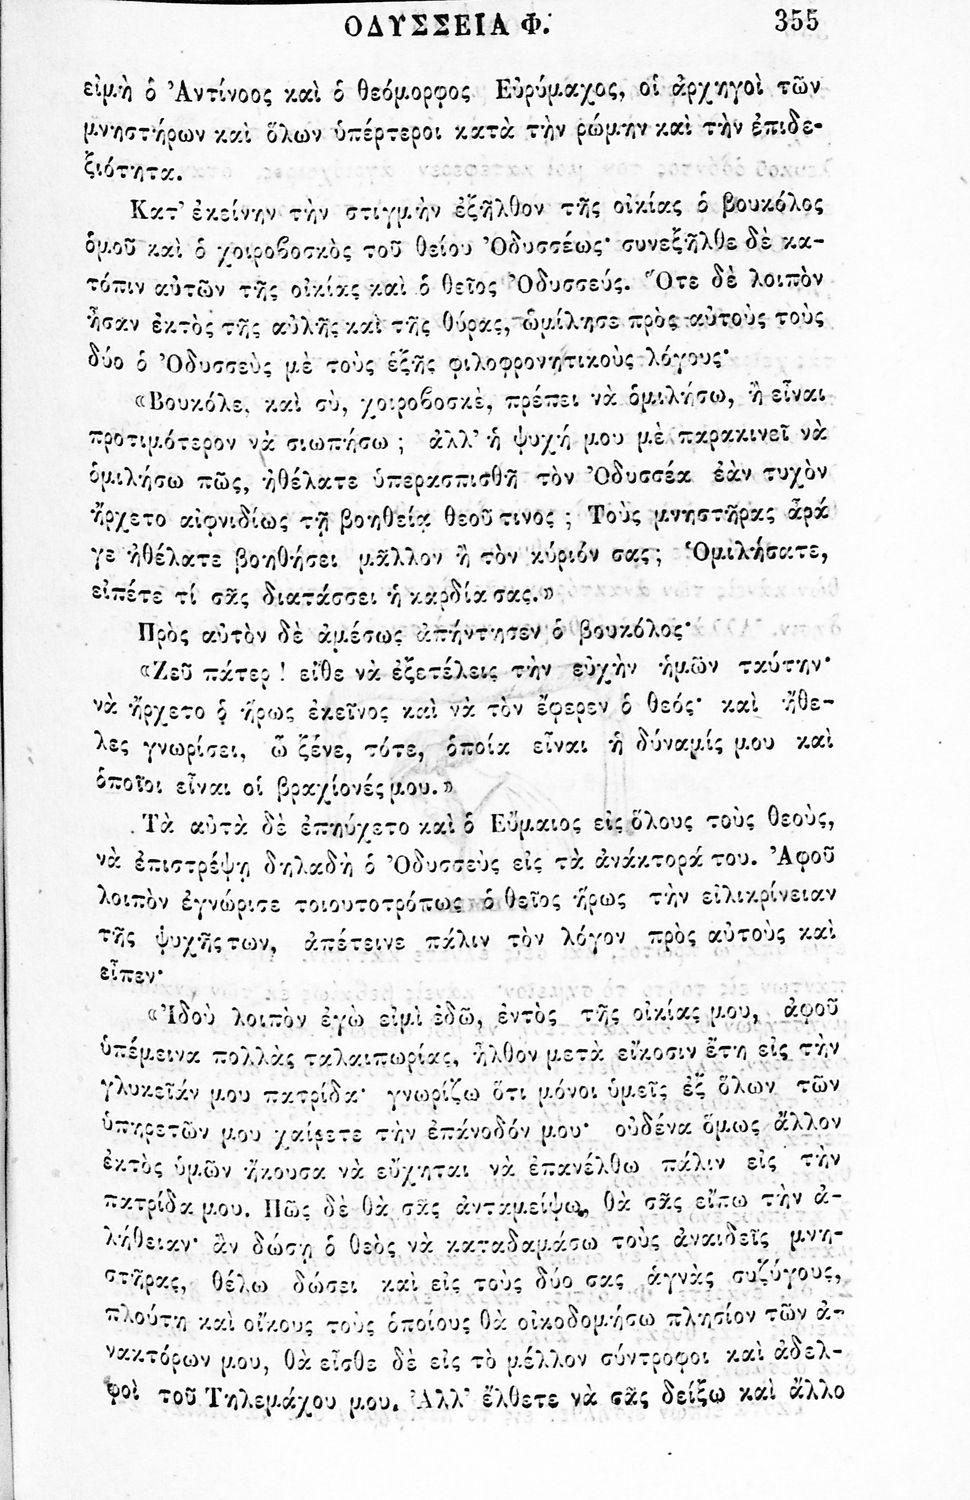 ΟΔΥΣΣΕΙΑ Φ.
355
εἰμὴ ὁ Ἀντίνοος καὶ ὁ θεόμορφος Εὐρύμαχος, οἱ ἀρχηγοὶ τῶν
μνηστήρων καὶ ὅλων ὑπέρτεροι κατὰ τὴν ῥώμην καὶ τὴν ἐπιδε-
ξιότητα.
Κατ' ἐκείνην τὴν στιγμὴν ἐξῆλθον τῆς οἰκίας ὁ βουκόλος
ὁμοῦ καὶ ὁ χοιροβοσκὸς τοῦ θείου Ὀδυσσέως· συνεξῆλθε δὲ κα-
τόπιν αὐτῶν τῆς οἰκίας καὶ ὁ θεῖος Ὀδυσσεύς. Ὅτε δὲ λοιπὸν
ἦσαν ἐκτὸς τῆς αὐλῆς καὶ τῆς θύρας, ὡμίλησε πρὸς αὐτοὺς τοὺς
δύο ὁ Ὀδυσσεὺς μὲ τοὺς ἑξῆς φιλοφρονητικοὺς λόγους·
«Βουκόλε, καὶ σὺ, χοιροβοσκὲ, πρέπει νὰ ὁμιλήσω, ἢ εἶναι
προτιμότερον νὰ σιωπήσω ; ἀλλ' ἡ ψυχή μου μὲ παρακινεῖ νὰ
ὁμιλήσω πῶς, ἠθέλατε ὑπερασπισθῆ τὸν Ὀδυσσέα ἐὰν τυχὸν
ἤρχετο αἰφνιδίως τῇ βοηθείᾳ θεοῦ τινος ; Τοὺς μνηστῆρας ἆρά
γε ἠθέλατε βοηθήσει μᾶλλον ἢ τὸν κύριόν σας ; Ὁμιλήσατε,
εἰπέτε τί σᾶς διατάσσει ἡ καρδία σας.»
Πρὸς αὐτὸν δὲ ἀμέσως ἀπήντησεν ὁ βουκόλος·
«Ζεῦ πάτερ ! εἴθε νὰ ἐξετέλεις τὴν εὐχὴν ἡμῶν ταύτην·
νὰ ἤρχετο ὁ ἥρως ἐκεῖνος καὶ νὰ τὸν ἔφερεν ὁ θεός· καὶ ἤθε-
λες γνωρίσει, ὦ ξένε, τότε, ὁποία εἶναι ἡ δύναμίς μου καὶ
ὁποῖοι εἶναι οἱ βραχίονές μου.»
Τὰ αὐτὰ δὲ ἐπηύχετο καὶ ὁ Εὔμαιος εἰς ὅλους τοὺς θεοὺς,
νὰ ἐπιστρέψῃ δηλαδὴ ὁ Ὀδυσσεὺς εἰς τὰ ἀνάκτορά του. Ἀφοῦ
λοιπὸν ἐγνώρισε τοιουτοτρόπως ὁ θεῖος ἥρως τὴν εἰλικρίνειαν
τῆς ψυχῆς των, ἀπέτεινε πάλιν τὸν λόγον πρὸς αὐτοὺς καὶ
εἶπεν·
«Ἰδοὺ λοιπὸν ἐγὼ εἰμὶ ἐδῶ, ἐντὸς τῆς οἰκίας μου, ἀφοῦ
ὑπέμεινα πολλὰς ταλαιπωρίας, ἦλθον μετὰ εἴκοσιν ἔτη εἰς τὴν
γλυκεῖάν μου πατρίδα· γνωρίζω ὅτι μόνοι ὑμεῖς ἐξ ὅλων τῶν
ὑπηρετῶν μου χαίρετε τὴν ἐπάνοδόν μου· οὐδένα ὅμως ἄλλον
ἐκτὸς ὑμῶν ἤκουσα νὰ εὔχηται νὰ ἐπανέλθω πάλιν εἰς τὴν
πατρίδα μου. Πῶς δὲ θὰ σᾶς ἀνταμείψω, θὰ σᾶς εἴπω τὴν ἀ-
λήθειαν· ἂν δώσῃ ὁ θεὸς νὰ καταδαμάσω τοὺς ἀναιδεῖς μνη-
στῆρας, θέλω δώσει καὶ εἰς τοὺς δύο σας ἁγνὰς συζύγους,
πλούτη καὶ οἴκους τοὺς ὁποίους θὰ οἰκοδομήσω πλησίον τῶν ἀ-
νακτόρων μου, θὰ εἶσθε δὲ εἰς τὸ μέλλον σύντροφοι καὶ ἀδελ-
φοὶ τοῦ Τηλεμάχου μου. Ἀλλ' ἔλθετε νὰ σᾶς δείξω καὶ ἄλλο